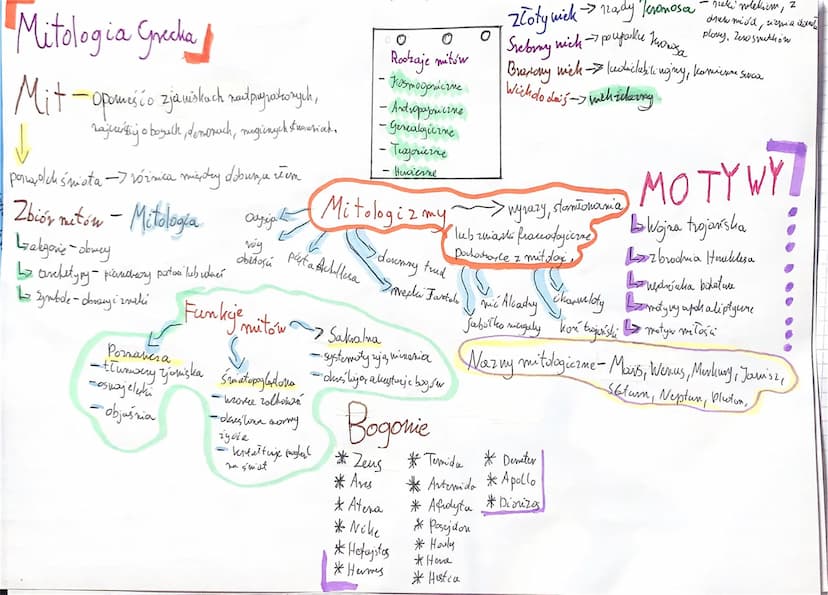 Mitologia Grecka
Mit – opowieść o zjawiskach nadprzyrodzonych,
najczęściej o bogach, demonach, magicznych stworzeniach.
porządek świata → różnica między dobrem a złem
Zbiór mitów – Mitologia
alegorie – obrazy
archetypy – pierwotny postaci lub zdarzeń
symbole – obrazy i znaki
Rodzaje mitów
– Kosmogoniczne
– Antropogoniczne
– Genealogiczne
– Teogoniczne
– Heroiczne
Złoty wiek → rządy Kronosa – rzeki mlekiem, z
drzew miód, ziemia
plony, zero smutków
Srebrny wiek →
Brązowy wiek → ludzie lubili wojny, kamienne serca
Wiek do dziś → wiek żelazny
Mitologizmy → wyrazy, sformułowania
lub związki frazeologiczne
pochodzące z mitologii
róg
obfitości
pięta Achillesa
daremny trud
męki Tantala
nić Ariadny
jabłko niezgody
ikarowe loty
koń trojański
MOTYWY
Wojna trojańska
zbrodnia Heraklesa
wędrówka bohatera
motywy apokaliptyczne
motyw miłości
Funkcje
mitów
Poznawcza
– tłumaczy zjawiska
– oswaja lęki
– objaśnia
Światopoglądowa
– wzorce zachowań
– określone normy
życia
– kształtuje pogląd
na świat
Sakralna
– systematyzują wierzenia
– określają charakterystykę bogów
Nazwy mitologiczne – Mars, Wenus, Merkury, Jowisz,
Saturn, Neptun, Pluton,
Bogowie
* Zeus
* Ares
* Atena
* Nike
* Hefajstos
* Hermes
* Temida
* Artemida
* Afrodyta
* Posejdon
* Hades
* Hera
* Hestia
* Demeter
* Apollo
* Dionizos